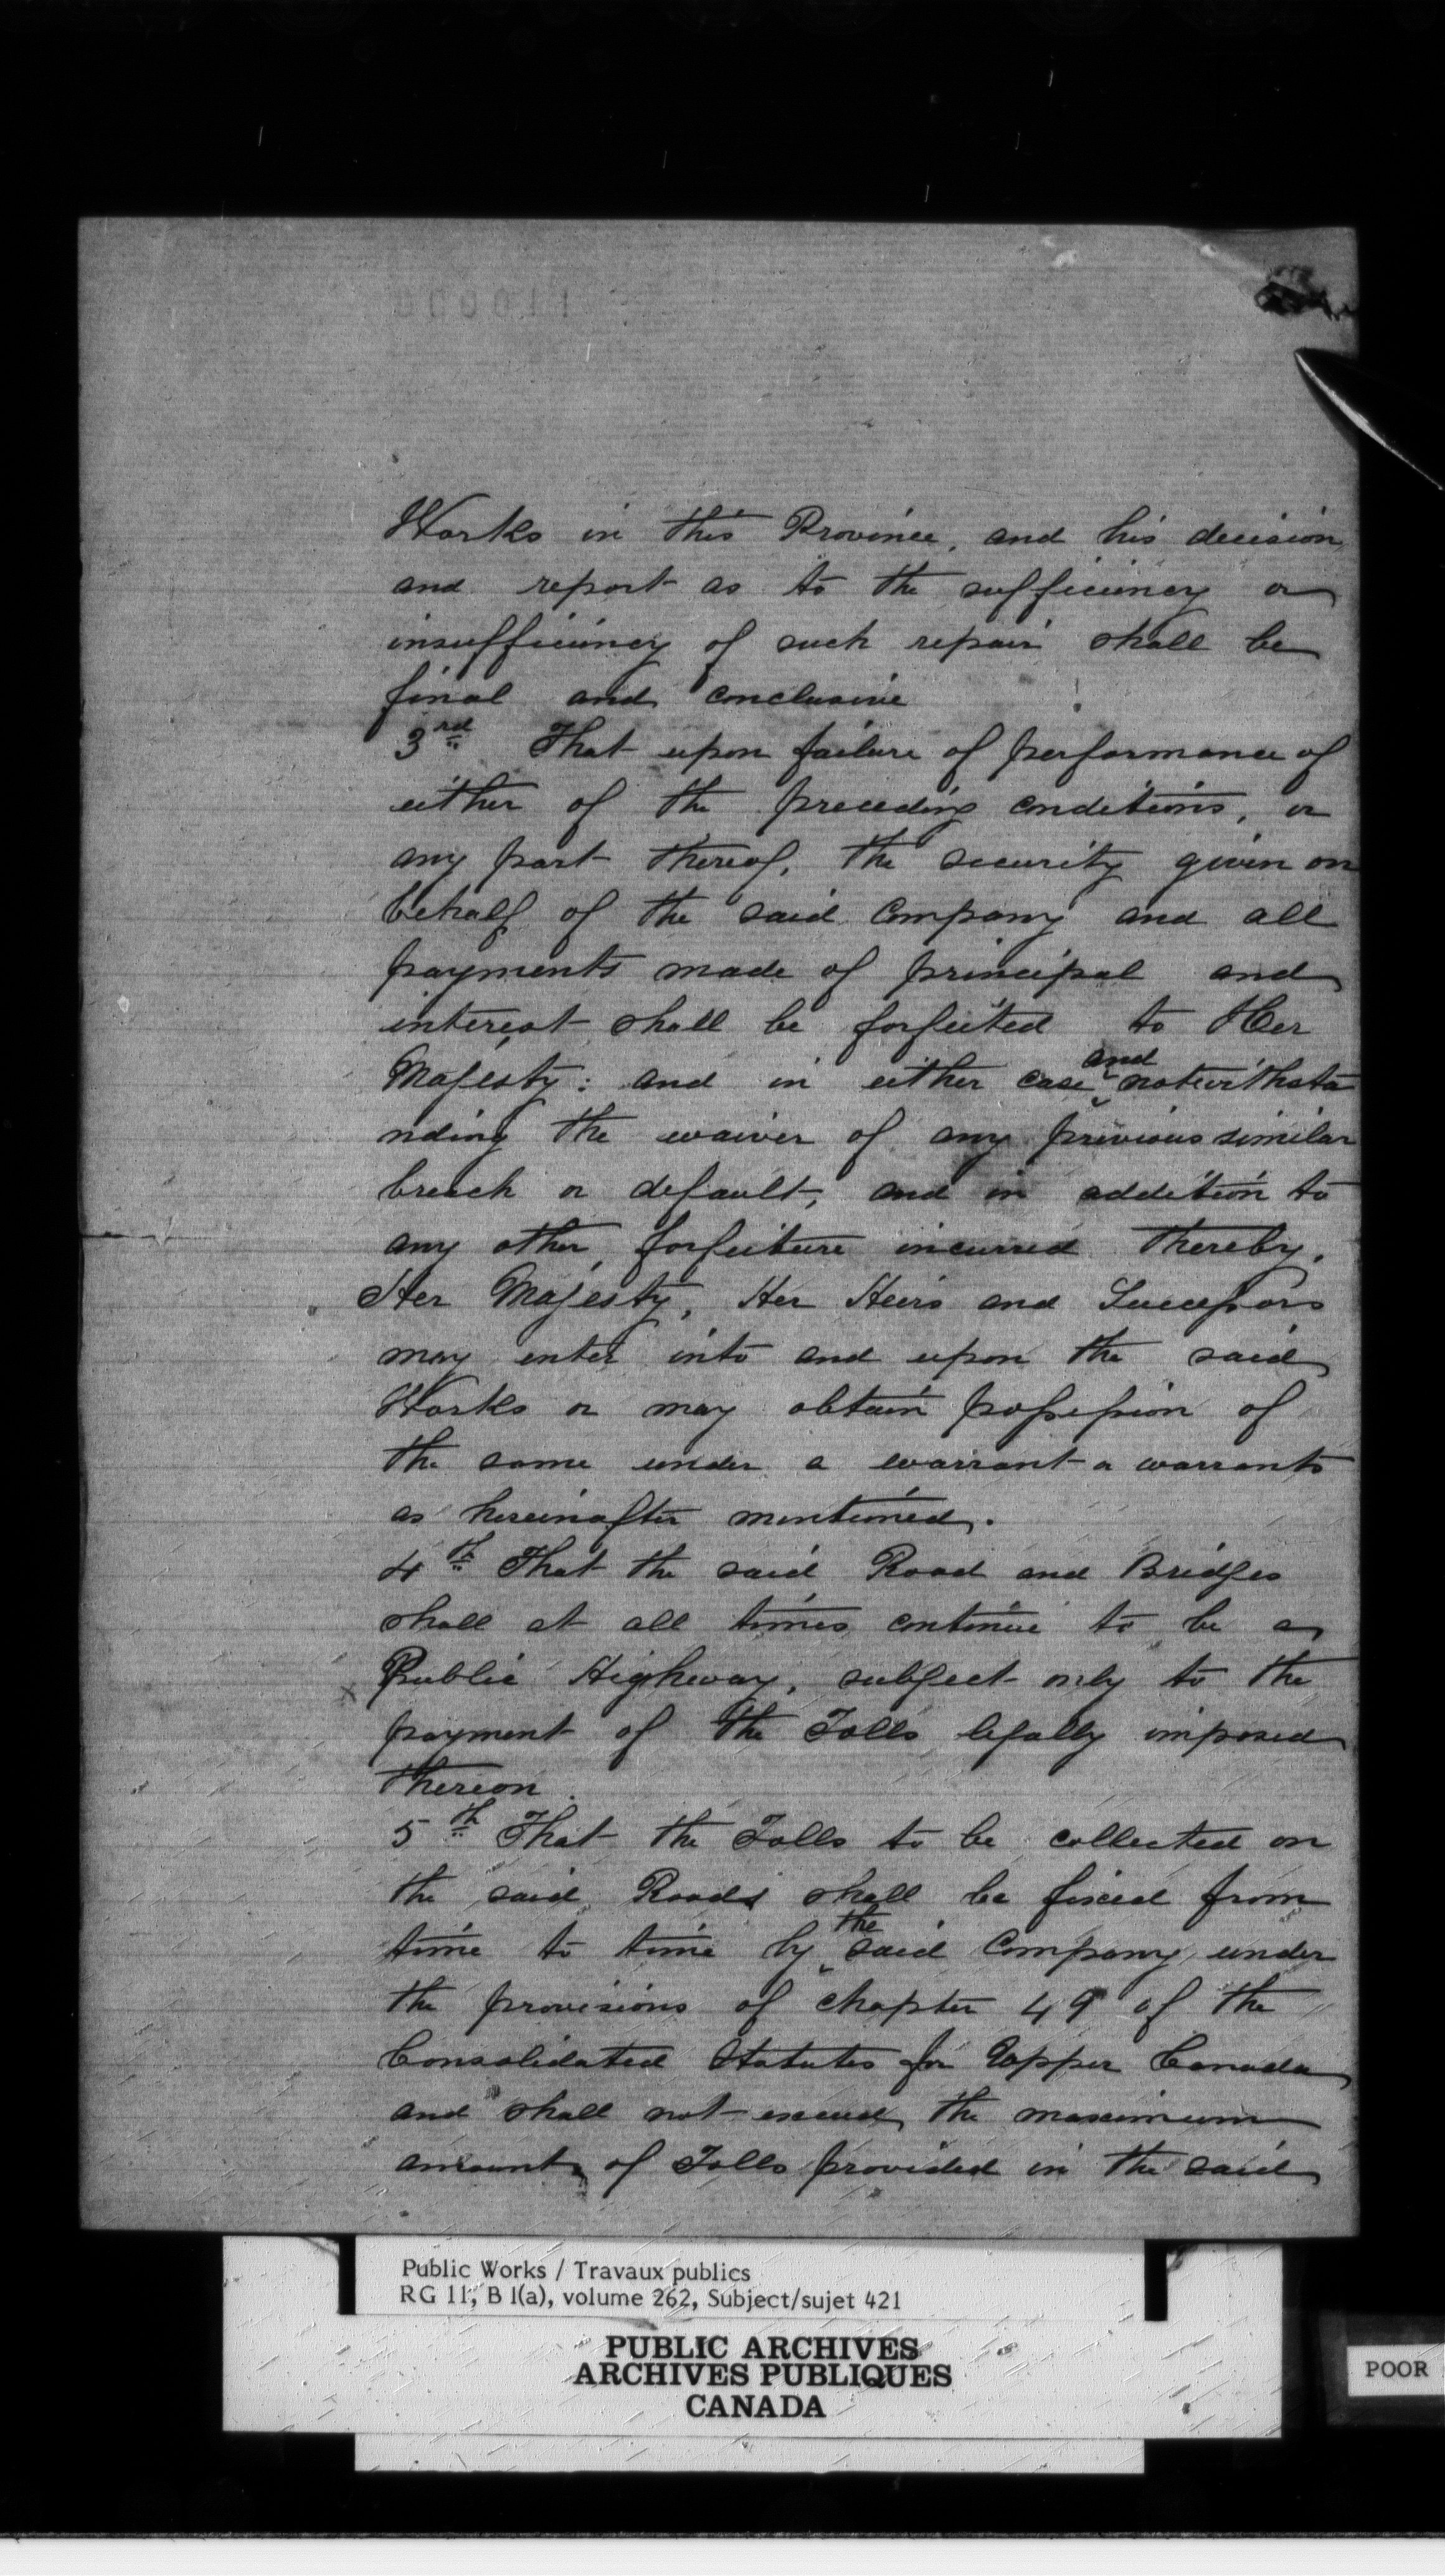 Works in this Province, and his decision
and report as to the sufficiency or
insufficiency of such repair shall be
final and conclusive
3rd That upon failure of performance of
either of the preceding conditions, or
any part thereof, the security given on
behalf of the said Company and all
payments made of principal and
interest shall be forfeited to Her
Majesty: and in either case and notwithsta
nding the waiver of any previous similar
breach or default, and in addition to
any other forfeiture incurred thereby,
Her Majesty, Her Heirs and Successors
may enter into and upon the said
Works or may obtain possession of
the same under a warrant or warrants
as hereinafter mentioned.
4th That the said Road and Bridges
shall at all times continue to be a
Public Highway, subject only to the
payment of the Tolls legally imposed
thereon.
5th That the Tolls to be collected on
the said Roads shall be fixed from
time to time by the said Company, under
the provisions of chapter 49 of the
Consolidated Statutes for Upper Canada
and shall not exceed the maximum
amounts of Tolls provided in the said
Public Works / Travaux publics
RG 11, B 1(a), volume 262, Subject/sujet 421
PUBLIC ARCHIVES
ARCHIVES PUBLIQUES
CANADA
POOR